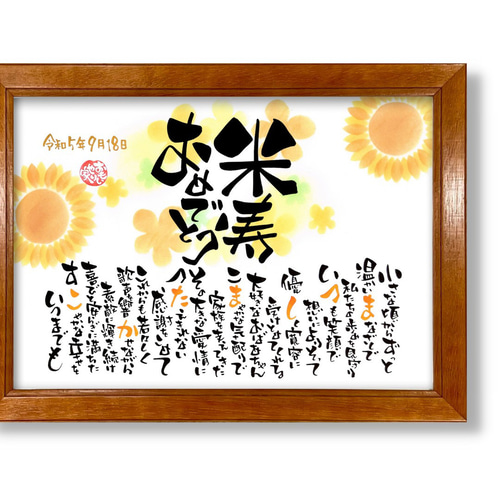 令和5年9月18日
米寿
おめでとう
小さな頃からずっと
温かいまなざしで
見守り
いつも笑顔で
想いによりそって
優しく寛容に
受けとめてくれる
大好きなおばあちゃん
こまやかな気配りで
家族を支えて
その大きな愛情に
つたえきれない
感謝をこめて
これからも若々しく
歌声を響かせながら
素敵に輝き続け
喜びと安らぎに満ちた
すこやかな
いつまでも